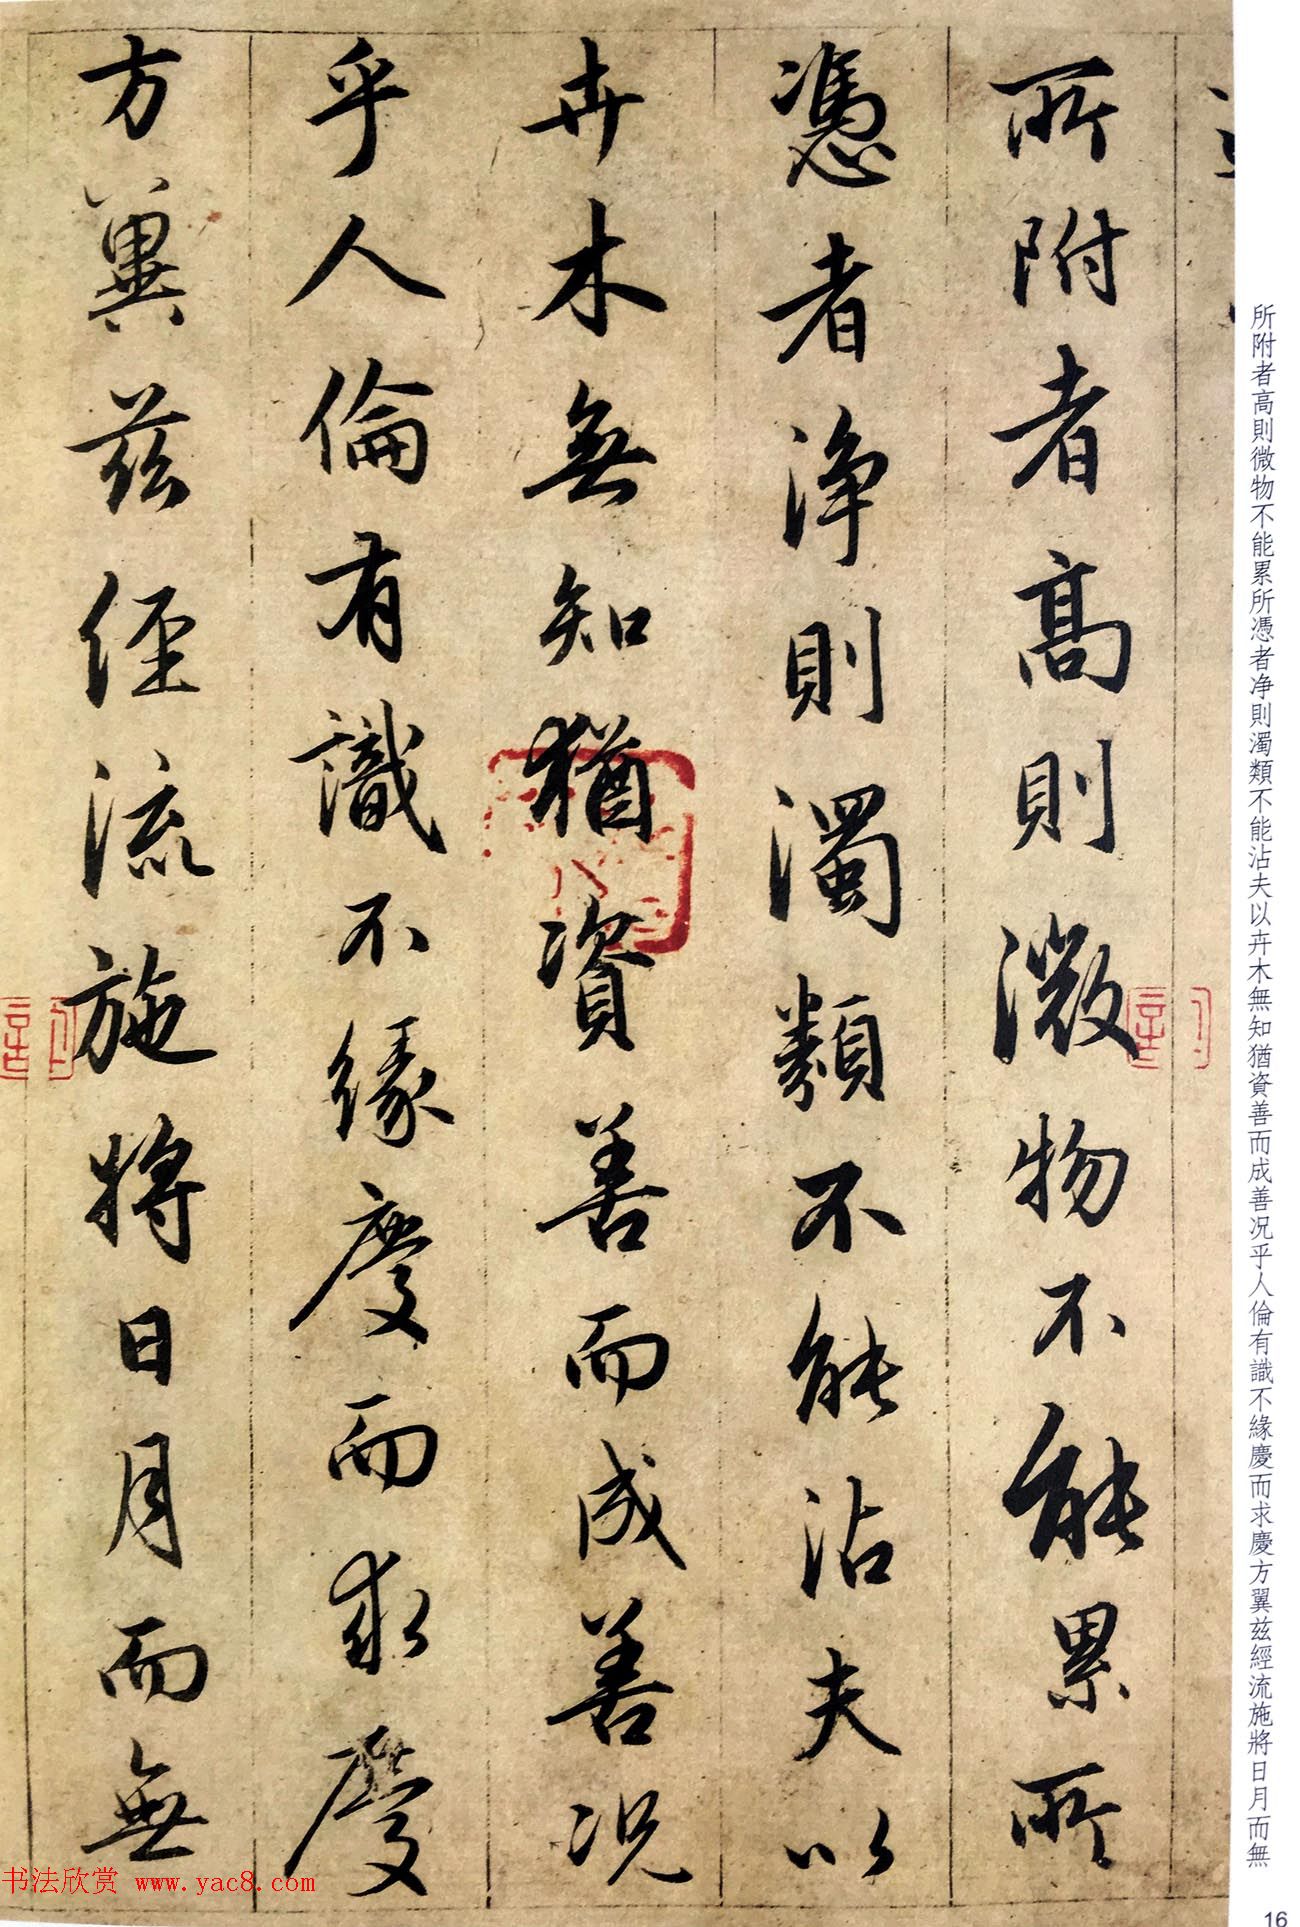 所附者高則微物不能累所
憑者淨則濁類不能沾夫以
卉木無知猶資善而成善況
乎人倫有識不緣慶而求慶
方翼茲經流施將日月而無
所附者高則微物不能累所憑者净則濁類不能沾夫以卉木無知猶資善而成善况乎人倫有識不緣慶而求慶方翼兹經流施將日月而無
16
书法欣赏 www.yac8.com